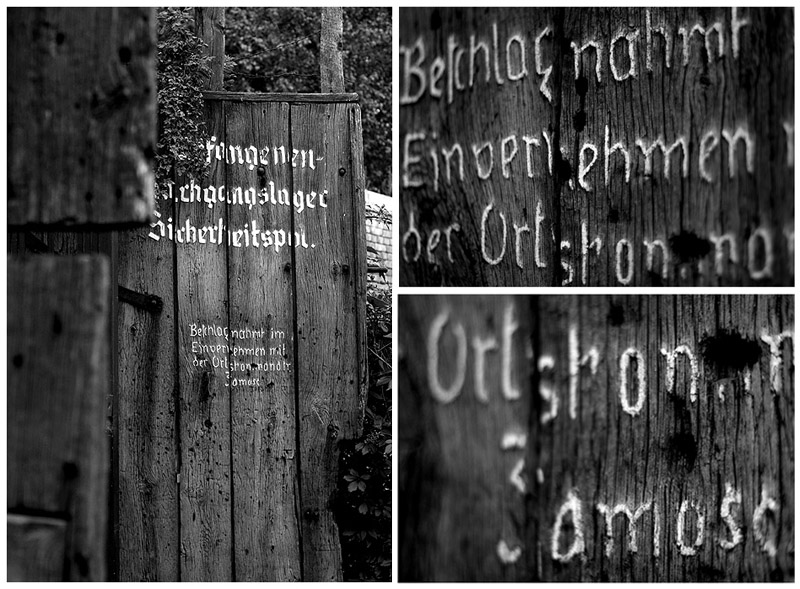 fangenen-
rchgangslager
Sicherheitspol.
Beschlagnahmt im
Einvernehmen mit
der Ortskommandtr.
Zamosc
Beschlagnahmt
Einvernehmen
der Ortskomma
Ort skomm
Zamosc